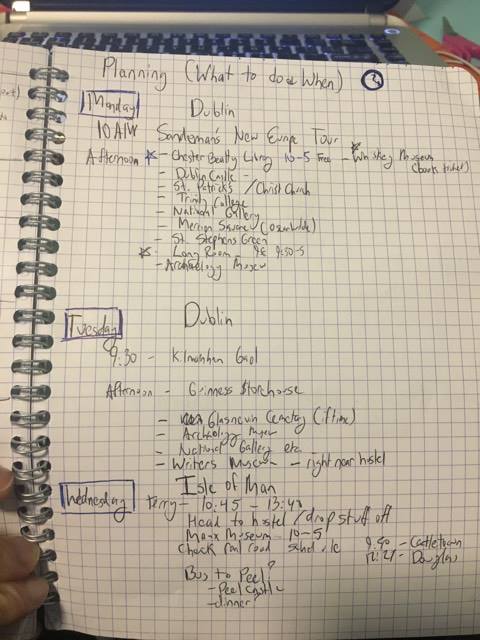 Planning (What to do & When) 3
Monday Dublin
10AM Sandeman's New Europe Tour
Afternoon * - Chester Beatty Library 10-5 Free - * Whiskey Museum
(book ticket)
- Dublin Castle -
- St. Patricks / Christ Church
- Trinity College
- National Gallery
- Merrion Square (Oscar Wilde)
- St. Stephens Green
* - Long Room - 9:30-5
- Archaeology Museum
Tuesday Dublin
9:30 - Kilmainham Gaol
Afternoon - Guinness Storehouse
- Glasnevin Cemetery (if time)
- Archaeology Museum
- National Gallery etc
- Writers Museum - right near hostel
Wednesday Isle of Man
Ferry - 10:45 - 13:48
Head to hostel / drop stuff off
Manx Museum 10-5
Check rail road schedule 9:50 - Castletown
- Douglas
Bus to Peel?
- Peel Castle
- dinner?